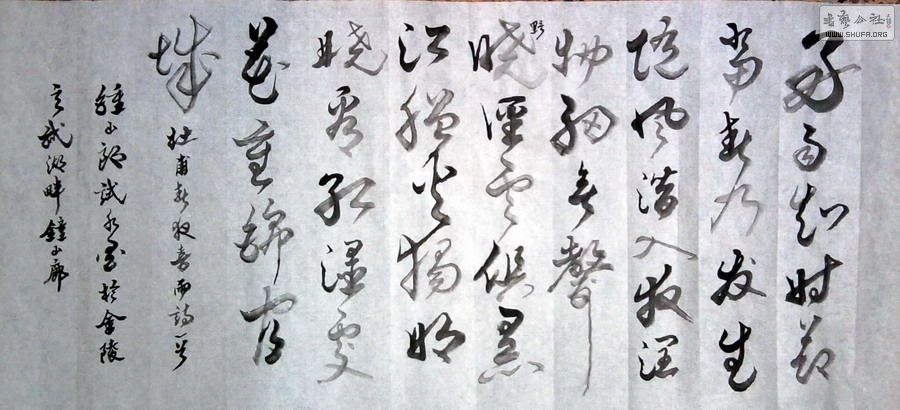 好雨知时节
当春乃发生
随风潜入夜润
物细无声
晓野径云俱黑
江船火独明
晓看红湿处
花重锦官
城 杜甫春夜喜雨诗一首
鍾山郎试水墨於金陵
玄武湖畔鍾山廊
书艺公社
WWW.SHUFA.ORG